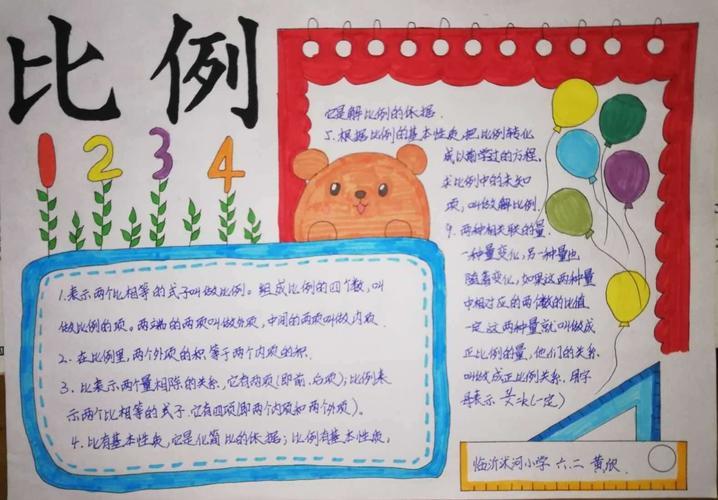 比例
1 2 3 4
1.表示两个比相等的式子叫做比例。组成比例的四个数,叫
做比例的项。两端的两项叫做外项,中间的两项叫做内项.
2.在比例里,两个外项的积等于两个内项的积.
3.比表示两个量相除的关系,它有两项(即前、后项);比例表
示两个比相等的式子,它有四项(即两个内项和两个外项)。
4.比有基本性质,它是化简比的依据;比例有基本性质,
它是解比例的依据.
5.根据比例的基本性质,把比例转化
成以前学过的方程,
求比例中的未知
项,叫做解比例.
9.两种相关联的量.
一种量变化,另一种量也
随着变化,如果这两种量
中相对应的两个数的比值
一定,这两种量就叫做成
正比例的量,他们的关系
叫做成正比例关系.用字
母表示 =k(一定)
临沂沭河小学 六.二 黄